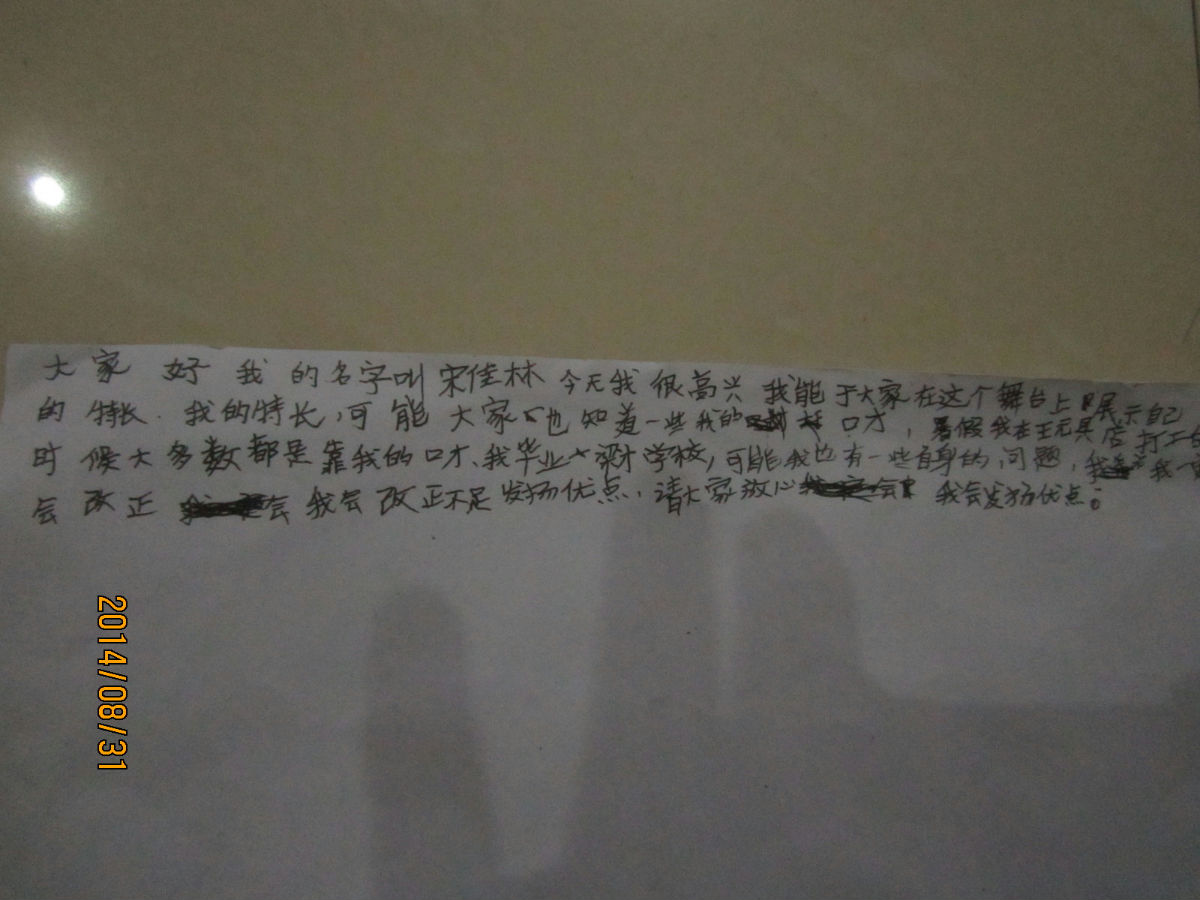 大家好我的名字叫宋佳林今天我很高兴我能于大家在这个舞台上展示自己
的特长.我的特长,可能大家也知道一些我的口才,暑假我在玩具店打工的
时候大多数都是靠我的口才、我毕业学校,可能我也有一些自身的问题,我
会改正会我会改正不足发扬优点,请大家放心会我会发扬优点。
2014/08/31